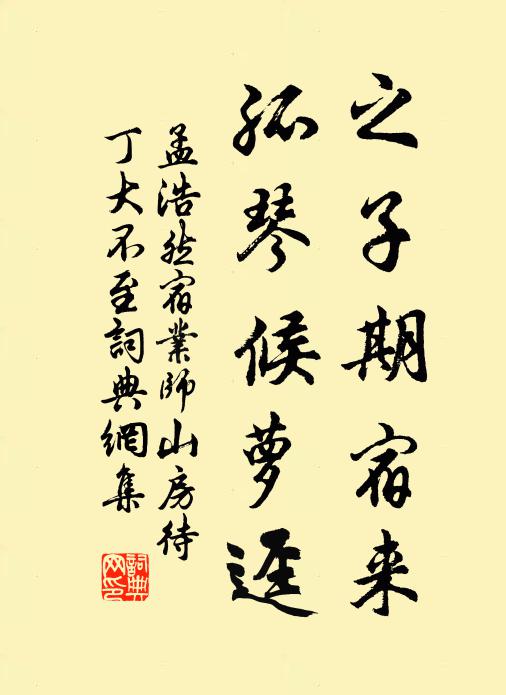 之子期宿来
孤琴候萝逕
孟浩然宿業師山房待
丁大不至詞典網集
詞典
网印